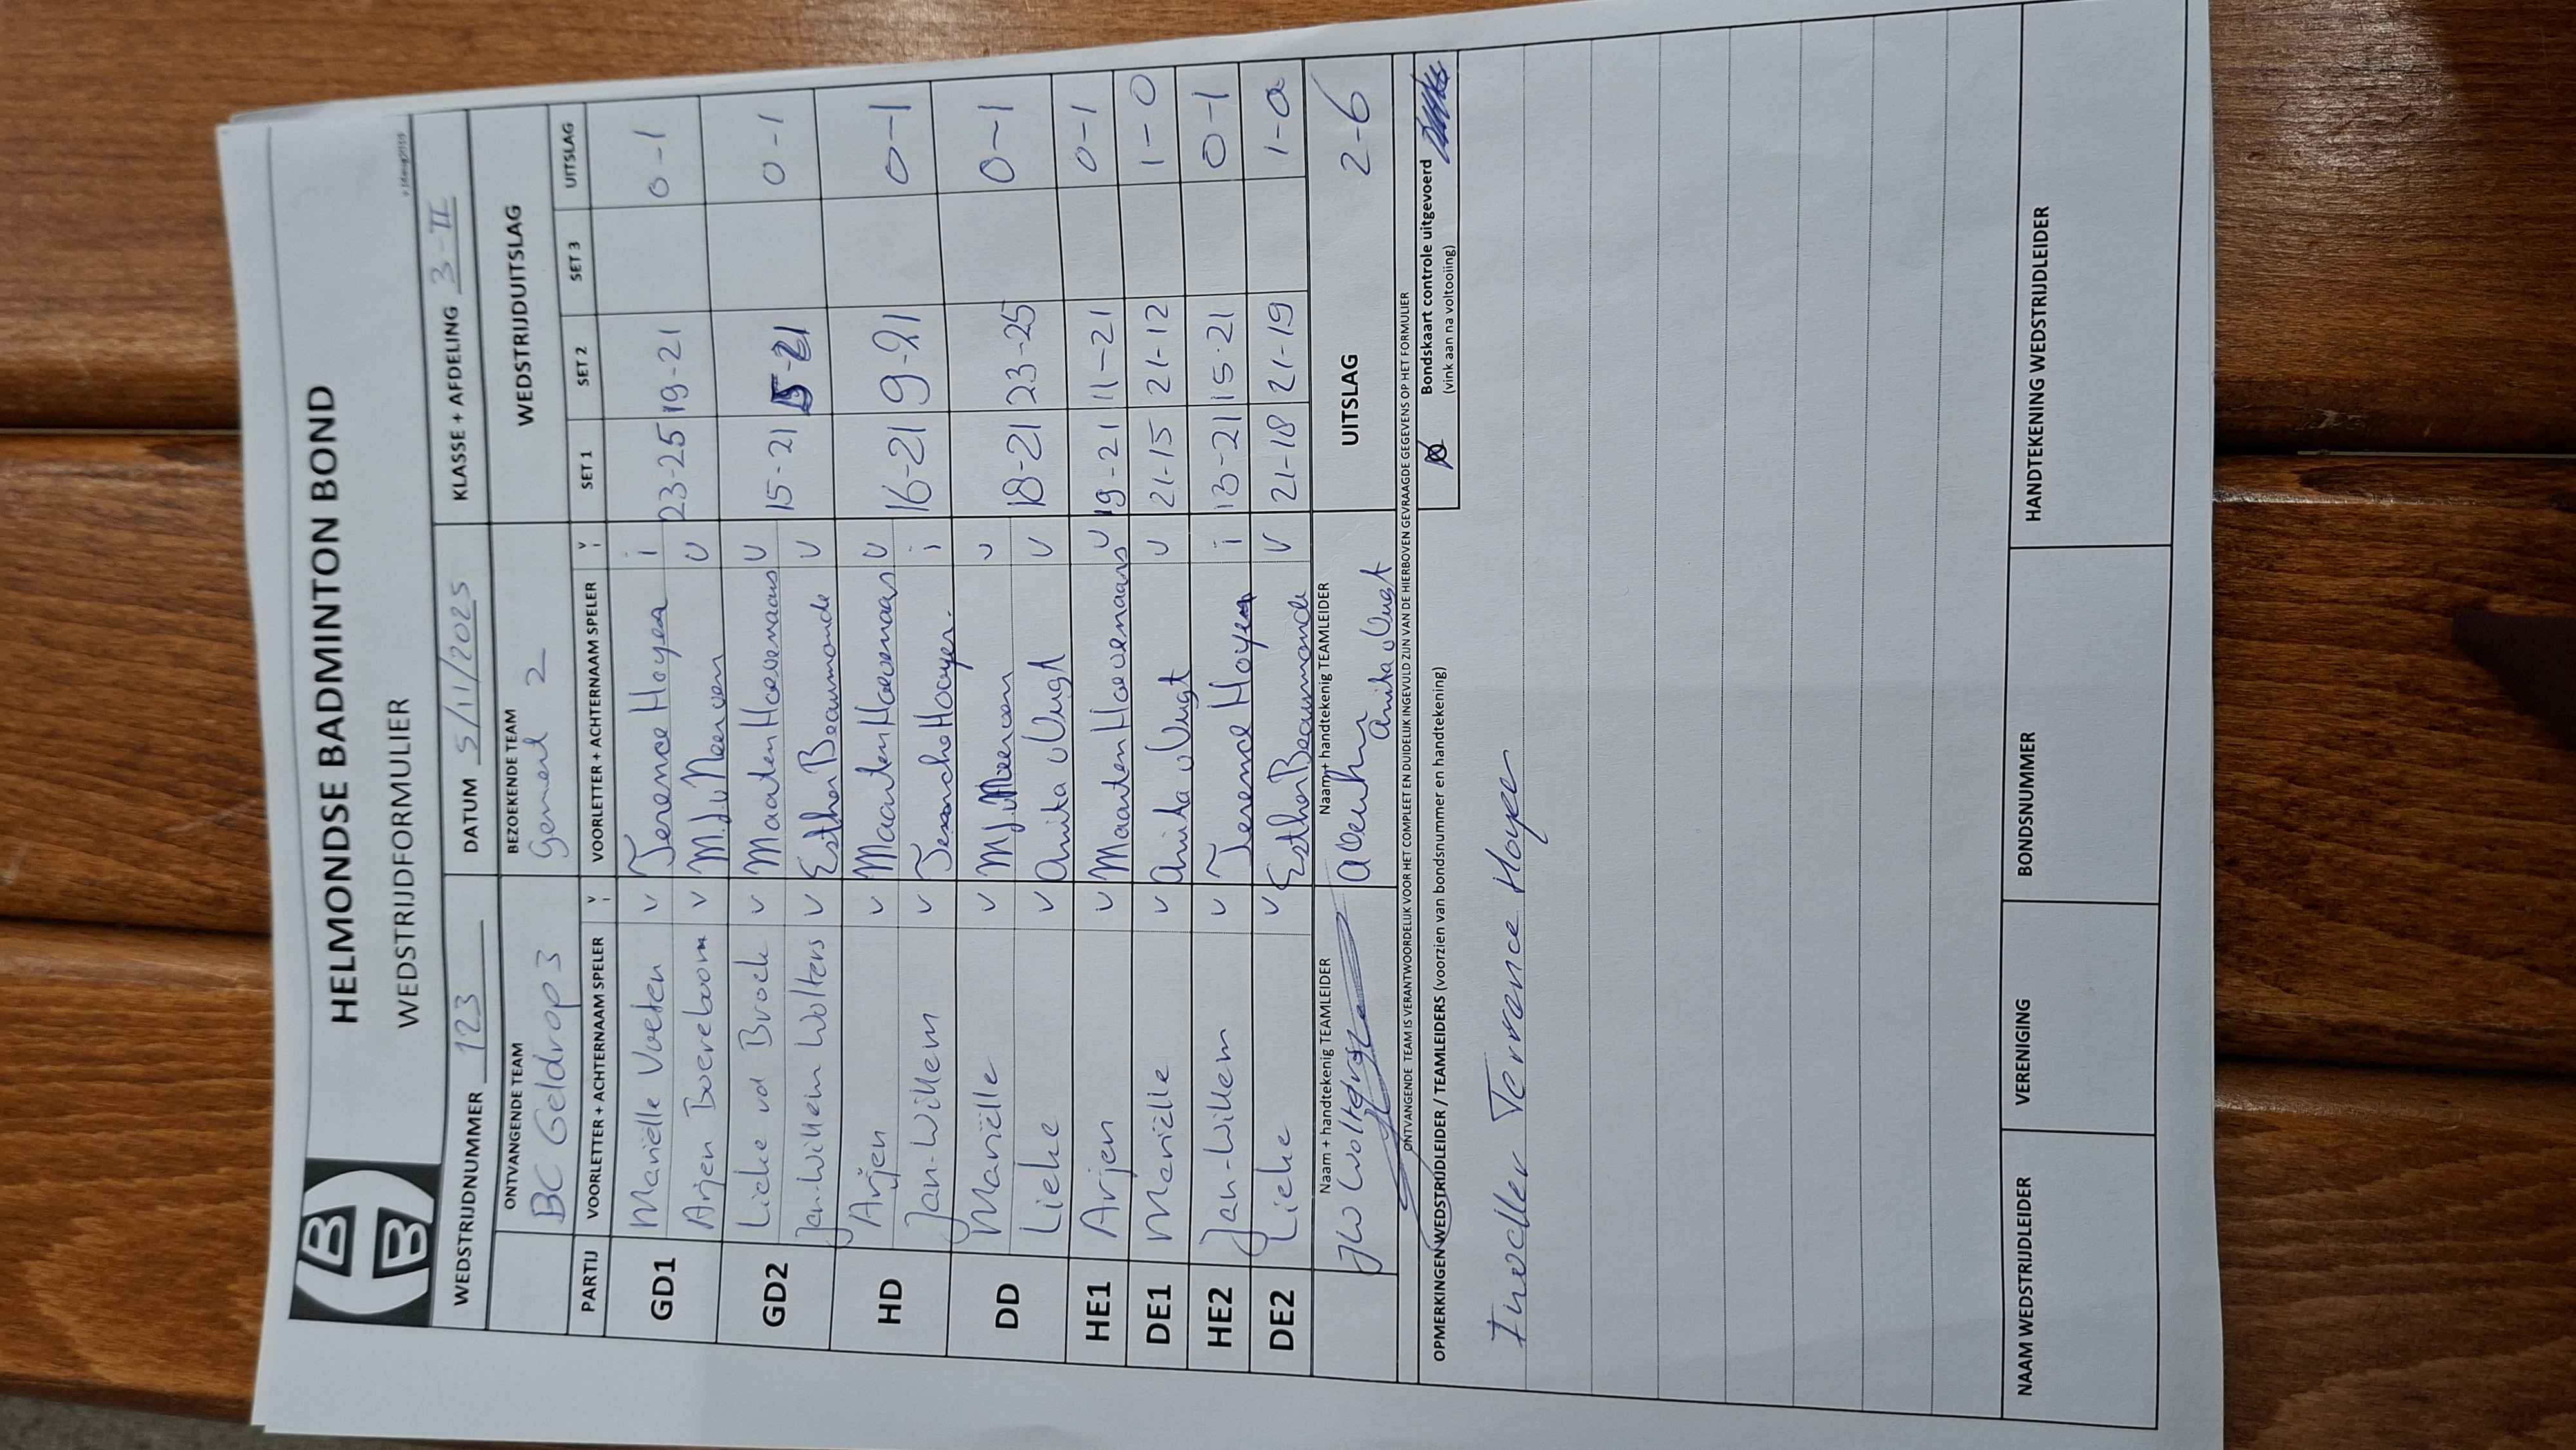 HELMONDSE BADMINTON BOND
WEDSTRIJDFORMULIER
WEDSTRIJDNUMMER 123 DATUM 5/11/2025 KLASSE + AFDELING 3-II
ONTVANGENDE TEAM BEZOEKENDE TEAM WEDSTRIJDUITSLAG
BC Geldrop 3 Gemert 2
PARTIJ VOORLETTER + ACHTERNAAM SPELER V I VOORLETTER + ACHTERNAAM SPELER V I SET 1 SET 2 SET 3 UITSLAG
GD1 Mariëlle Voeten v Terence Hoyer i 23-25 19-21 0-1
Arjen Boereboom v M.J. v Neerven v
GD2 Lieke vd Broek v Maarten Hoevenaars v 15-21 15-21 0-1
Jan-Willem Wolters v Esther Beaumonde v
HD Arjen v Maarten Hoevenaars v 16-21 9-21 0-1
Jan-Willem v Hooyer. i
DD Mariëlle v MJ v Neerven v 18-21 23-25 0-1
Lieke v Anita v Vugt v
HE1 Arjen v Maarten Hoevenaars v 19-21 11-21 0-1
DE1 Mariëlle v Anita v Vugt v 21-15 21-12 1-0
HE2 Jan-Willem v Terence Hoyer i 13-21 15-21 0-1
DE2 Lieke v Esther Beaumonde v 21-18 21-19 1-0
Naam + handtekenig TEAMLEIDER Naam + handtekenig TEAMLEIDER UITSLAG 2-6
JW Wolters
Anita v Vugt
ONTVANGENDE TEAM IS VERANTWOORDELIJK VOOR HET COMPLEET EN DUIDELIJK INGEVULD ZIJN VAN DE HIERBOVEN GEVRAAGDE GEGEVENS OP HET FORMULIER
OPMERKINGEN WEDSTRIJDLEIDER / TEAMLEIDERS (voorzien van bondsnummer en handtekening) Bondskaart controle uitgevoerd
(vink aan na voltooiing)
Invaller Terrance Hoyer
NAAM WEDSTRIJDLEIDER VERENIGING BONDSNUMMER HANDTEKENING WEDSTRIJDLEIDER